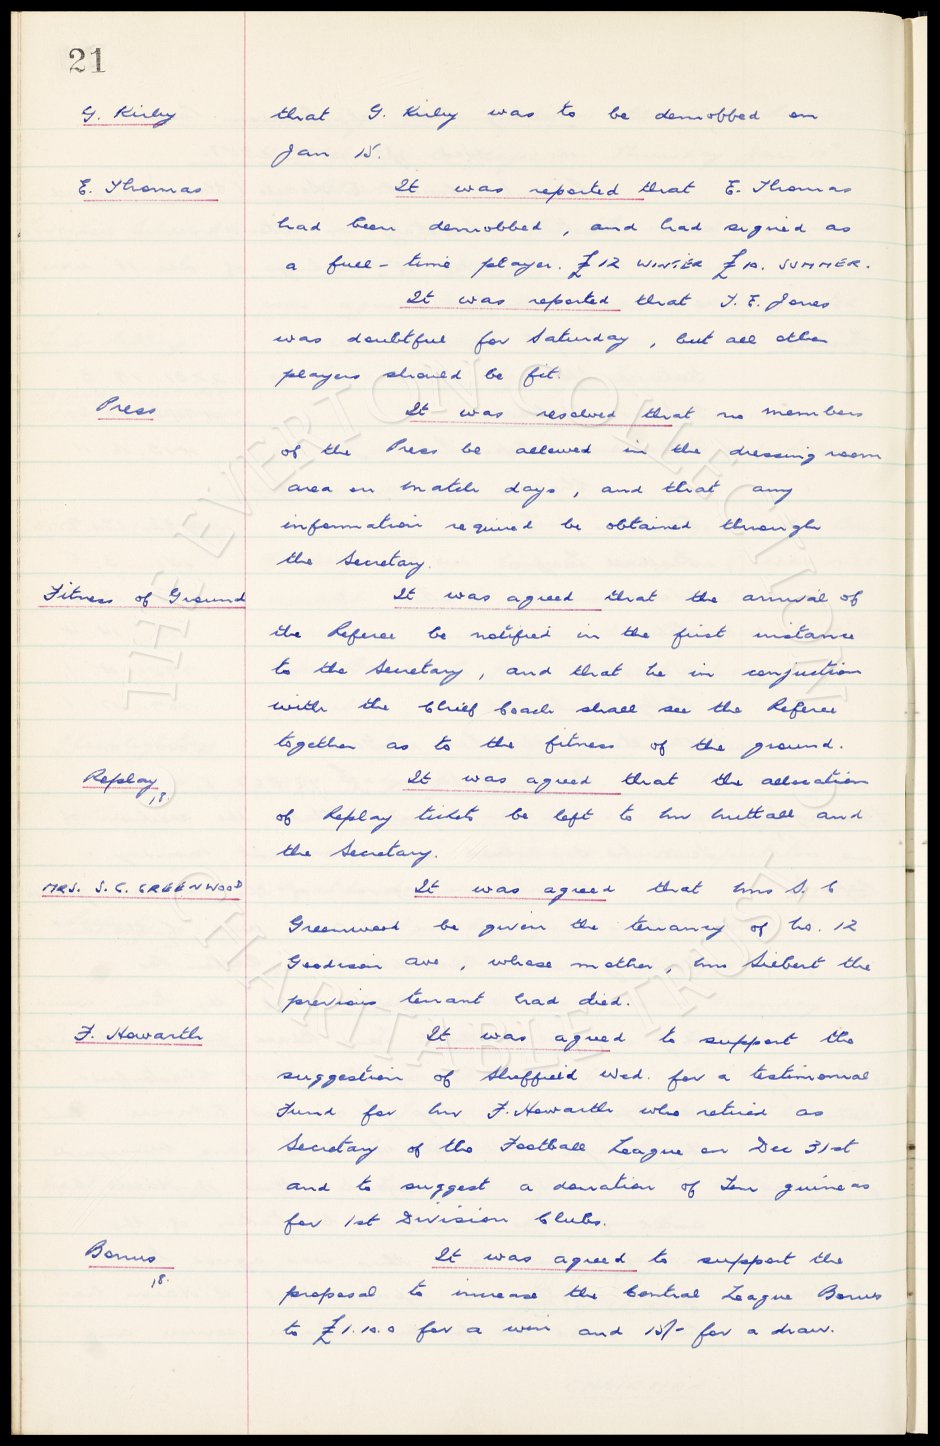 21
G. Kirby that G. Kirby was to be demobbed on
Jan 15.
E. Thomas It was reported that E. Thomas
had been demobbed, and had signed as
a full-time player. £12 WINTER £10. SUMMER.
It was reported that T. E. Jones
was doubtful for Saturday, but all other
players should be fit.
Press It was resolved that no members
of the Press be allowed in the dressing room
area on match days, and that any
information required be obtained through
the Secretary.
Fitness of Ground It was agreed that the arrival of
the Referee be notified in the first instance
to the Secretary, and that he in conjuction
with the Chief Coach shall see the Referee
together as to the fitness of the ground.
Replay It was agreed that the allocation
18
of Replay tickets be left to Mr Nuttall and
the Secretary.
MRS. S. C. GREENWOOD It was agreed that Mrs S. C
Greenwood be given the tenancy of No. 12
Goodison Ave, whose mother, Mrs Siebert the
previous tenant had died.
F. Howarth It was agreed to support the
suggestion of Sheffield Wed. for a testimonial
Fund for Mr F. Howarth who retired as
Secretary of the Football League on Dec 31st
and to suggest a donation of Ten guineas
for 1st Division Clubs.
Bonus It was agreed to support the
18.
proposal to increase the Central League Bonus
to £1.10.0 for a win and 15/- for a draw.
THE EVERTON COLLECTION
CHARITABLE TRUST